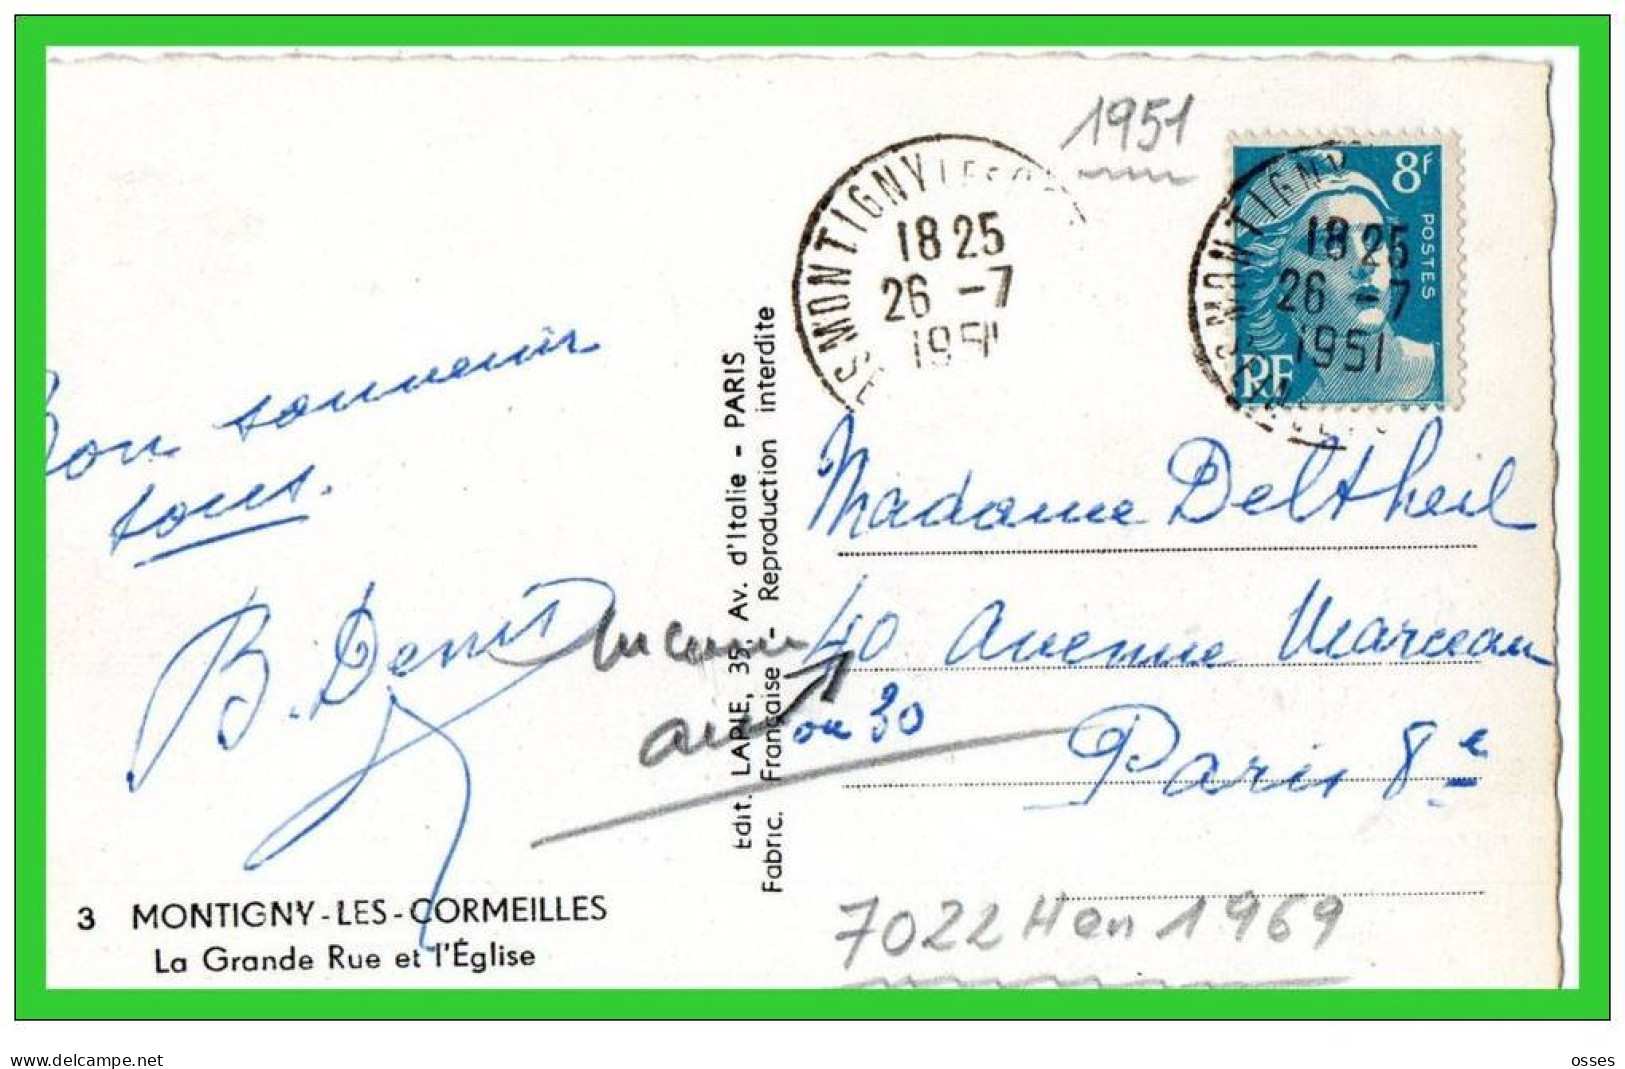 1951
MONTIGNY LES
18 25
26 -7
1951
MONTIGNY
18 25
26 -7
1951
8F
POSTES
RF
Bon souvenir
tous.
B. Denis
Inconnu
au
Madame Deltheil
40 Avenue Marceau
ou 30
Paris 8e
Edit. LAPIE, 35, Av. d'Italie - PARIS
Fabric. Française - Reproduction interdite
3 MONTIGNY-LES-CORMEILLES
La Grande Rue et l'Église
7022 H en 1969
www.delcampe.net
osses